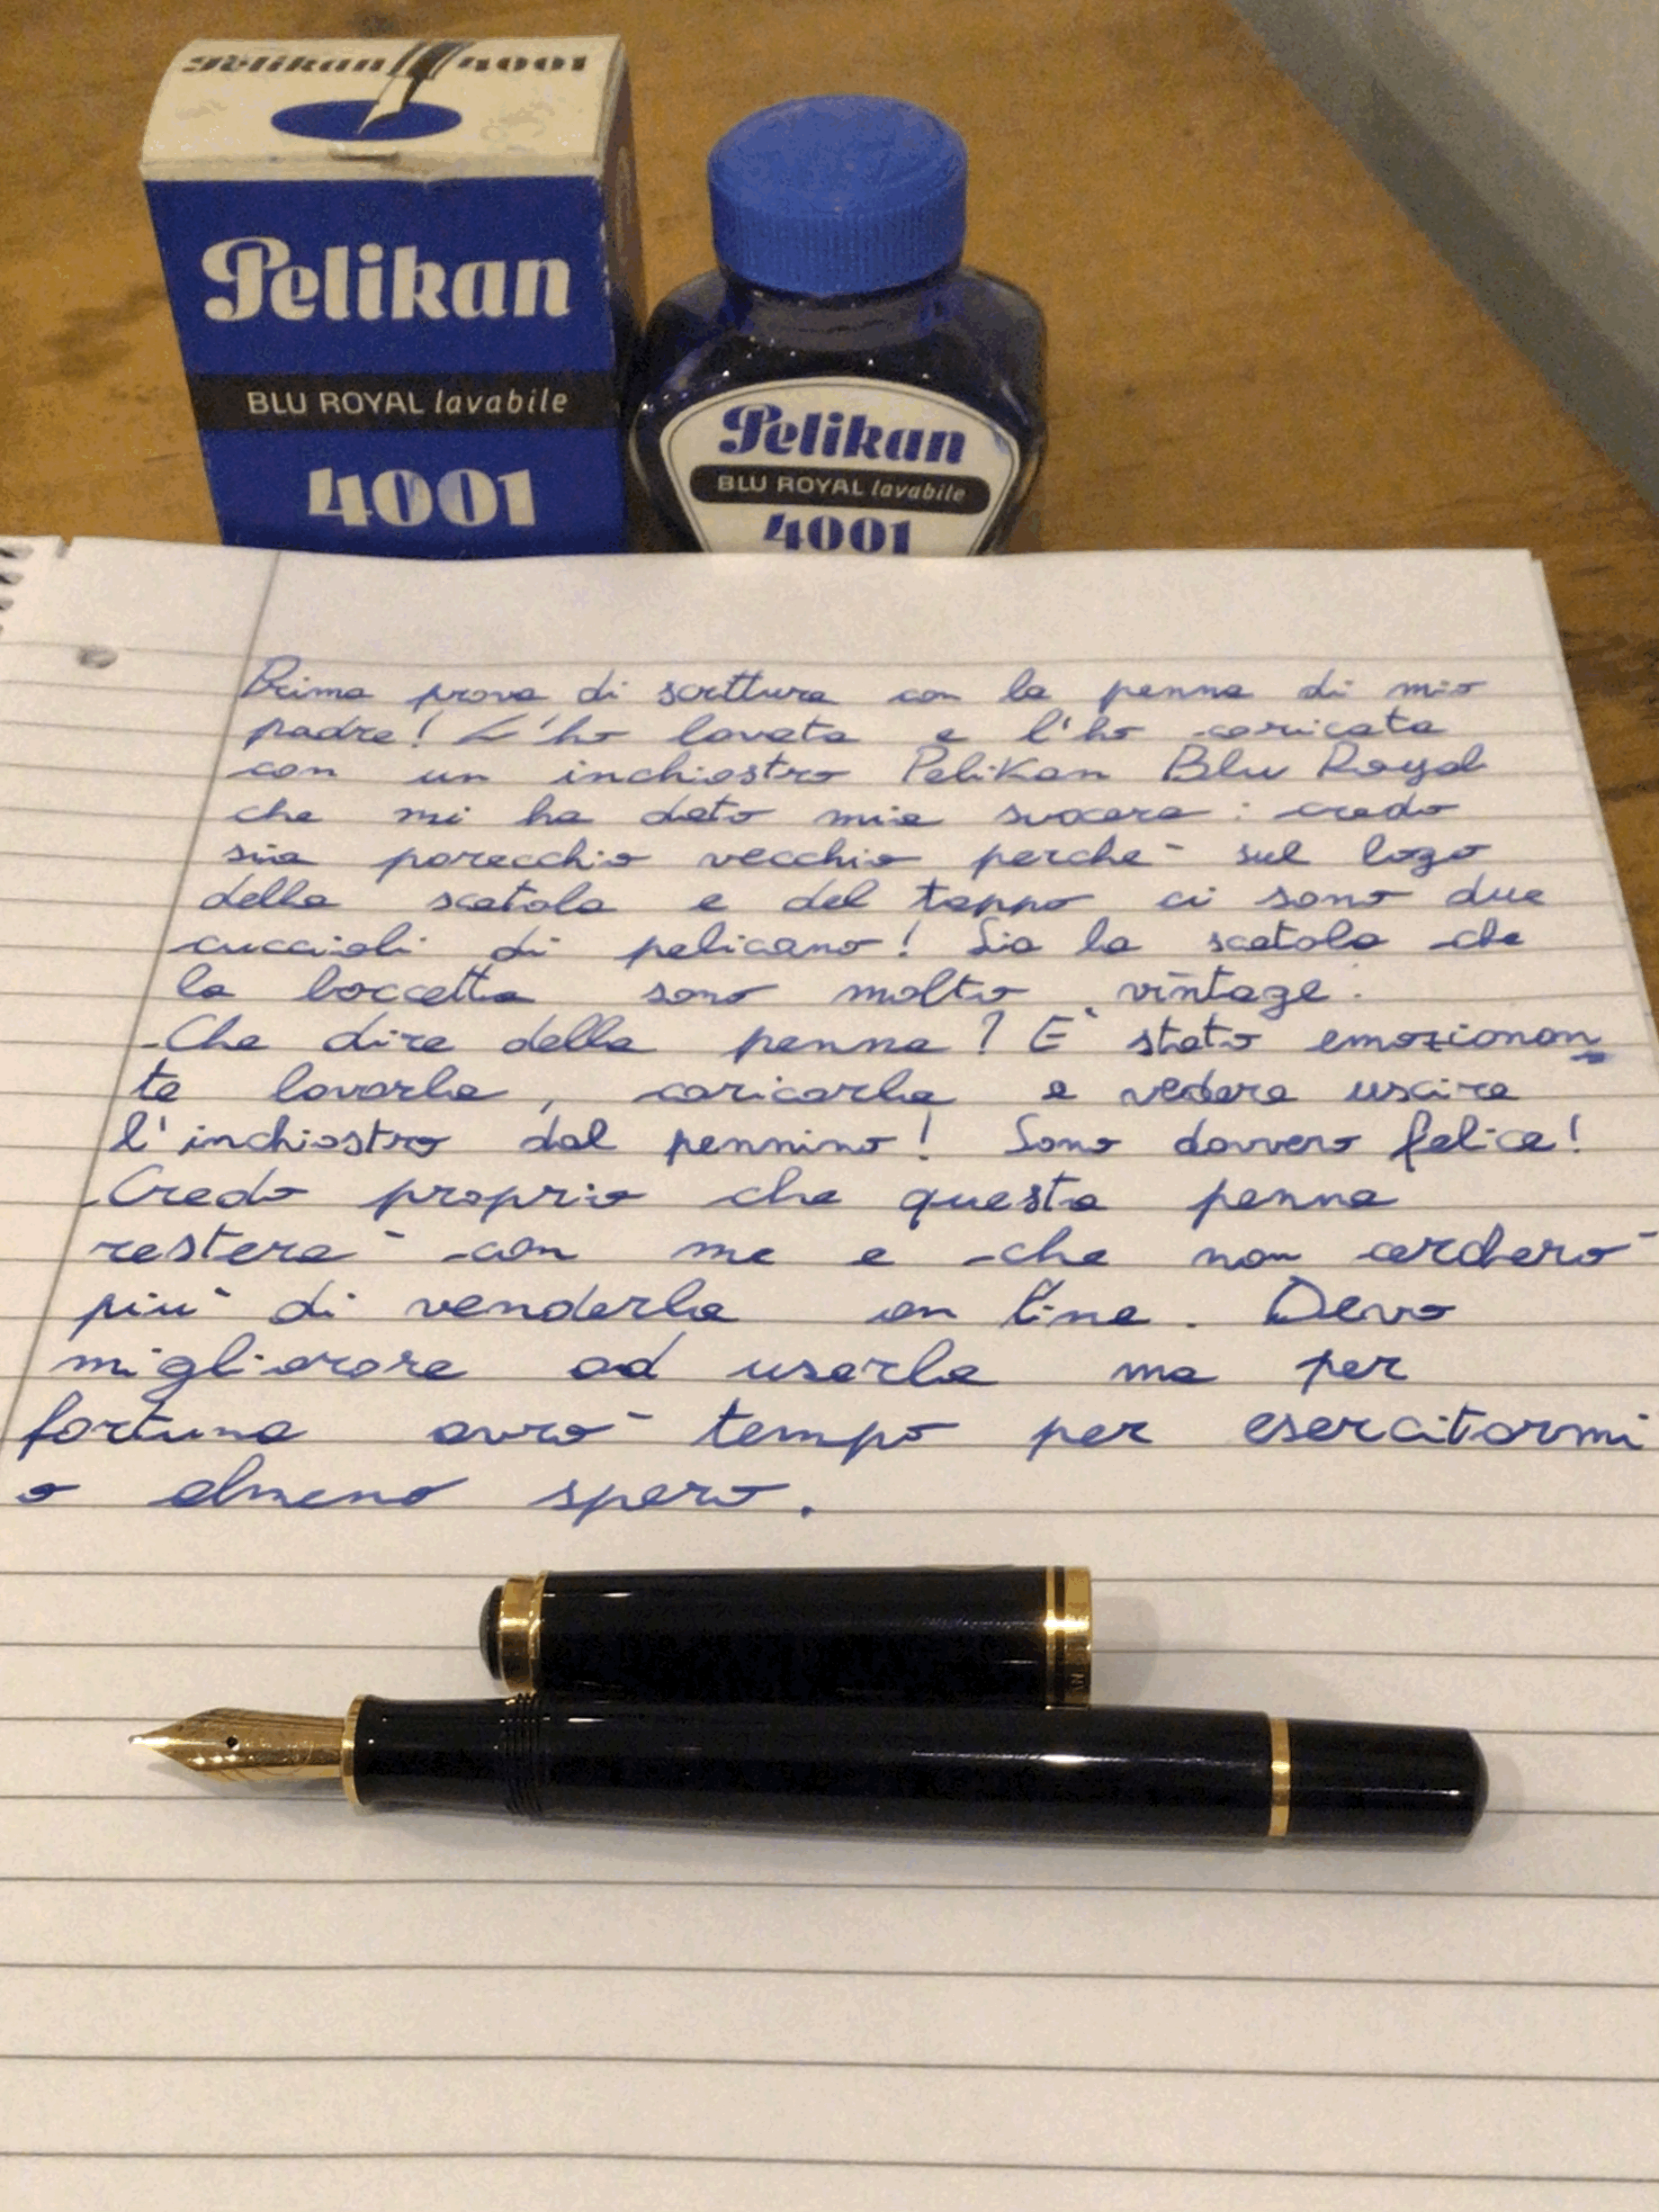 Pelikan 4001
Pelikan
BLU ROYAL lavabile
4001
Pelikan
BLU ROYAL lavabile
4001
Prima prova di scrittura con la penna di mio
padre! L'ho lavata e l'ho caricata
con un inchiostro Pelikan Blu Royal
che mi ha dato mia suocera: credo
sia parecchio vecchio perché sul logo
della scatola e del tappo ci sono due
cuccioli di pelicano! Sia la scatola che
la boccetta sono molto vintage.
Che dire della penna? E' stato emozionan
te lavarla, caricarla e vedere uscire
l'inchiostro dal pennino! Sono davvero felice!
Credo proprio che questa penna
resterà con me e che non cercherò
più di venderla on line. Devo
migliorare ad usarla ma per
fortuna avrò tempo per esercitarmi
o almeno spero.